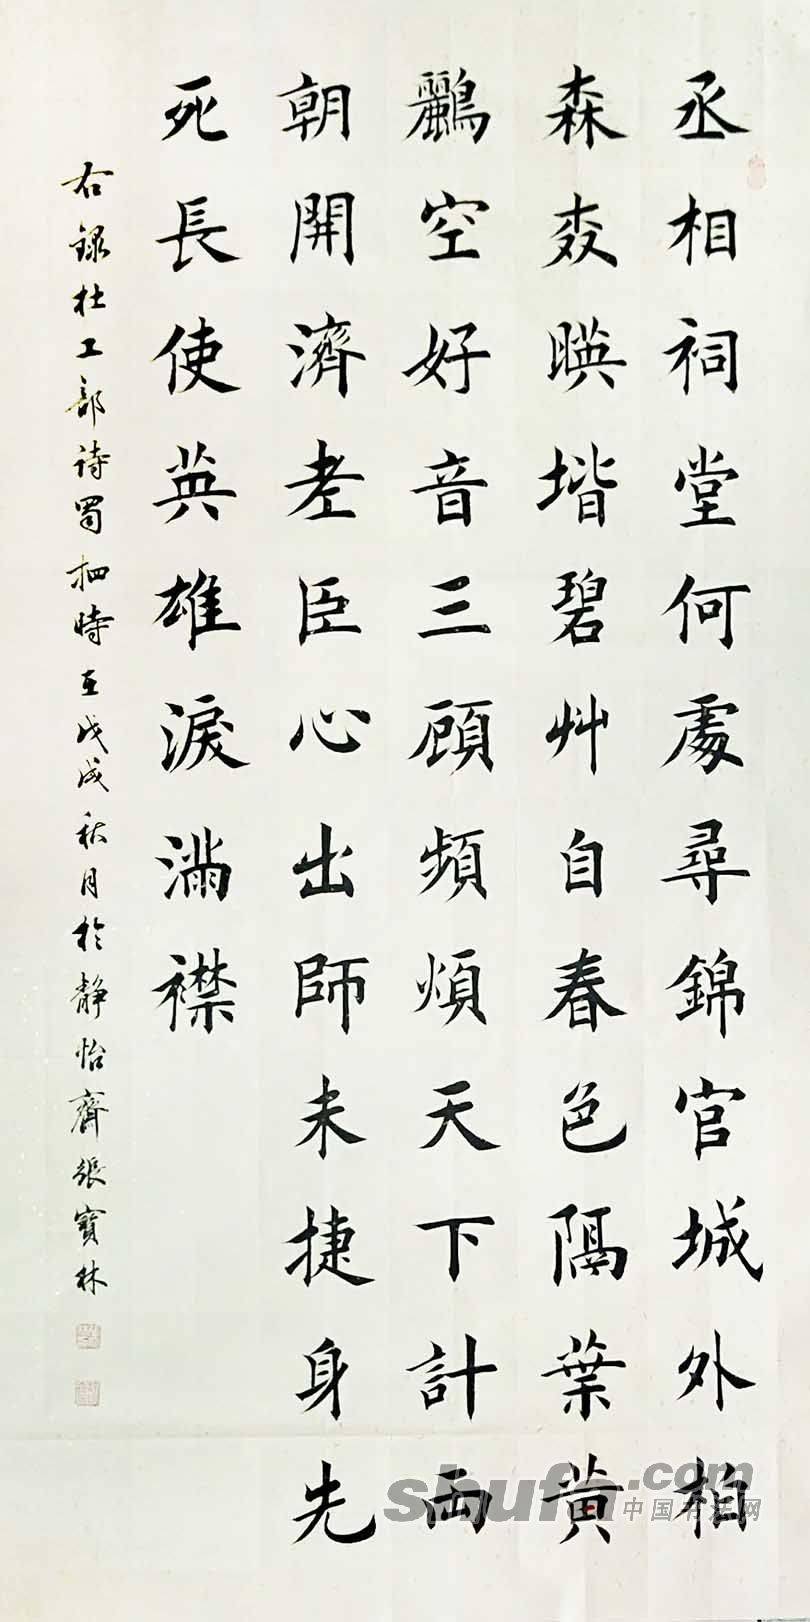 丞相祠堂何處尋錦官城外柏
森森暎堦碧艸自春色隔葉黃
鸝空好音三顧頻煩天下計兩
朝開濟老臣心出師未捷身先
死長使英雄淚滿襟
右録杜工部诗蜀相時在戊戌秋月於静怡齋張寶林
shufa.com
中国书法网